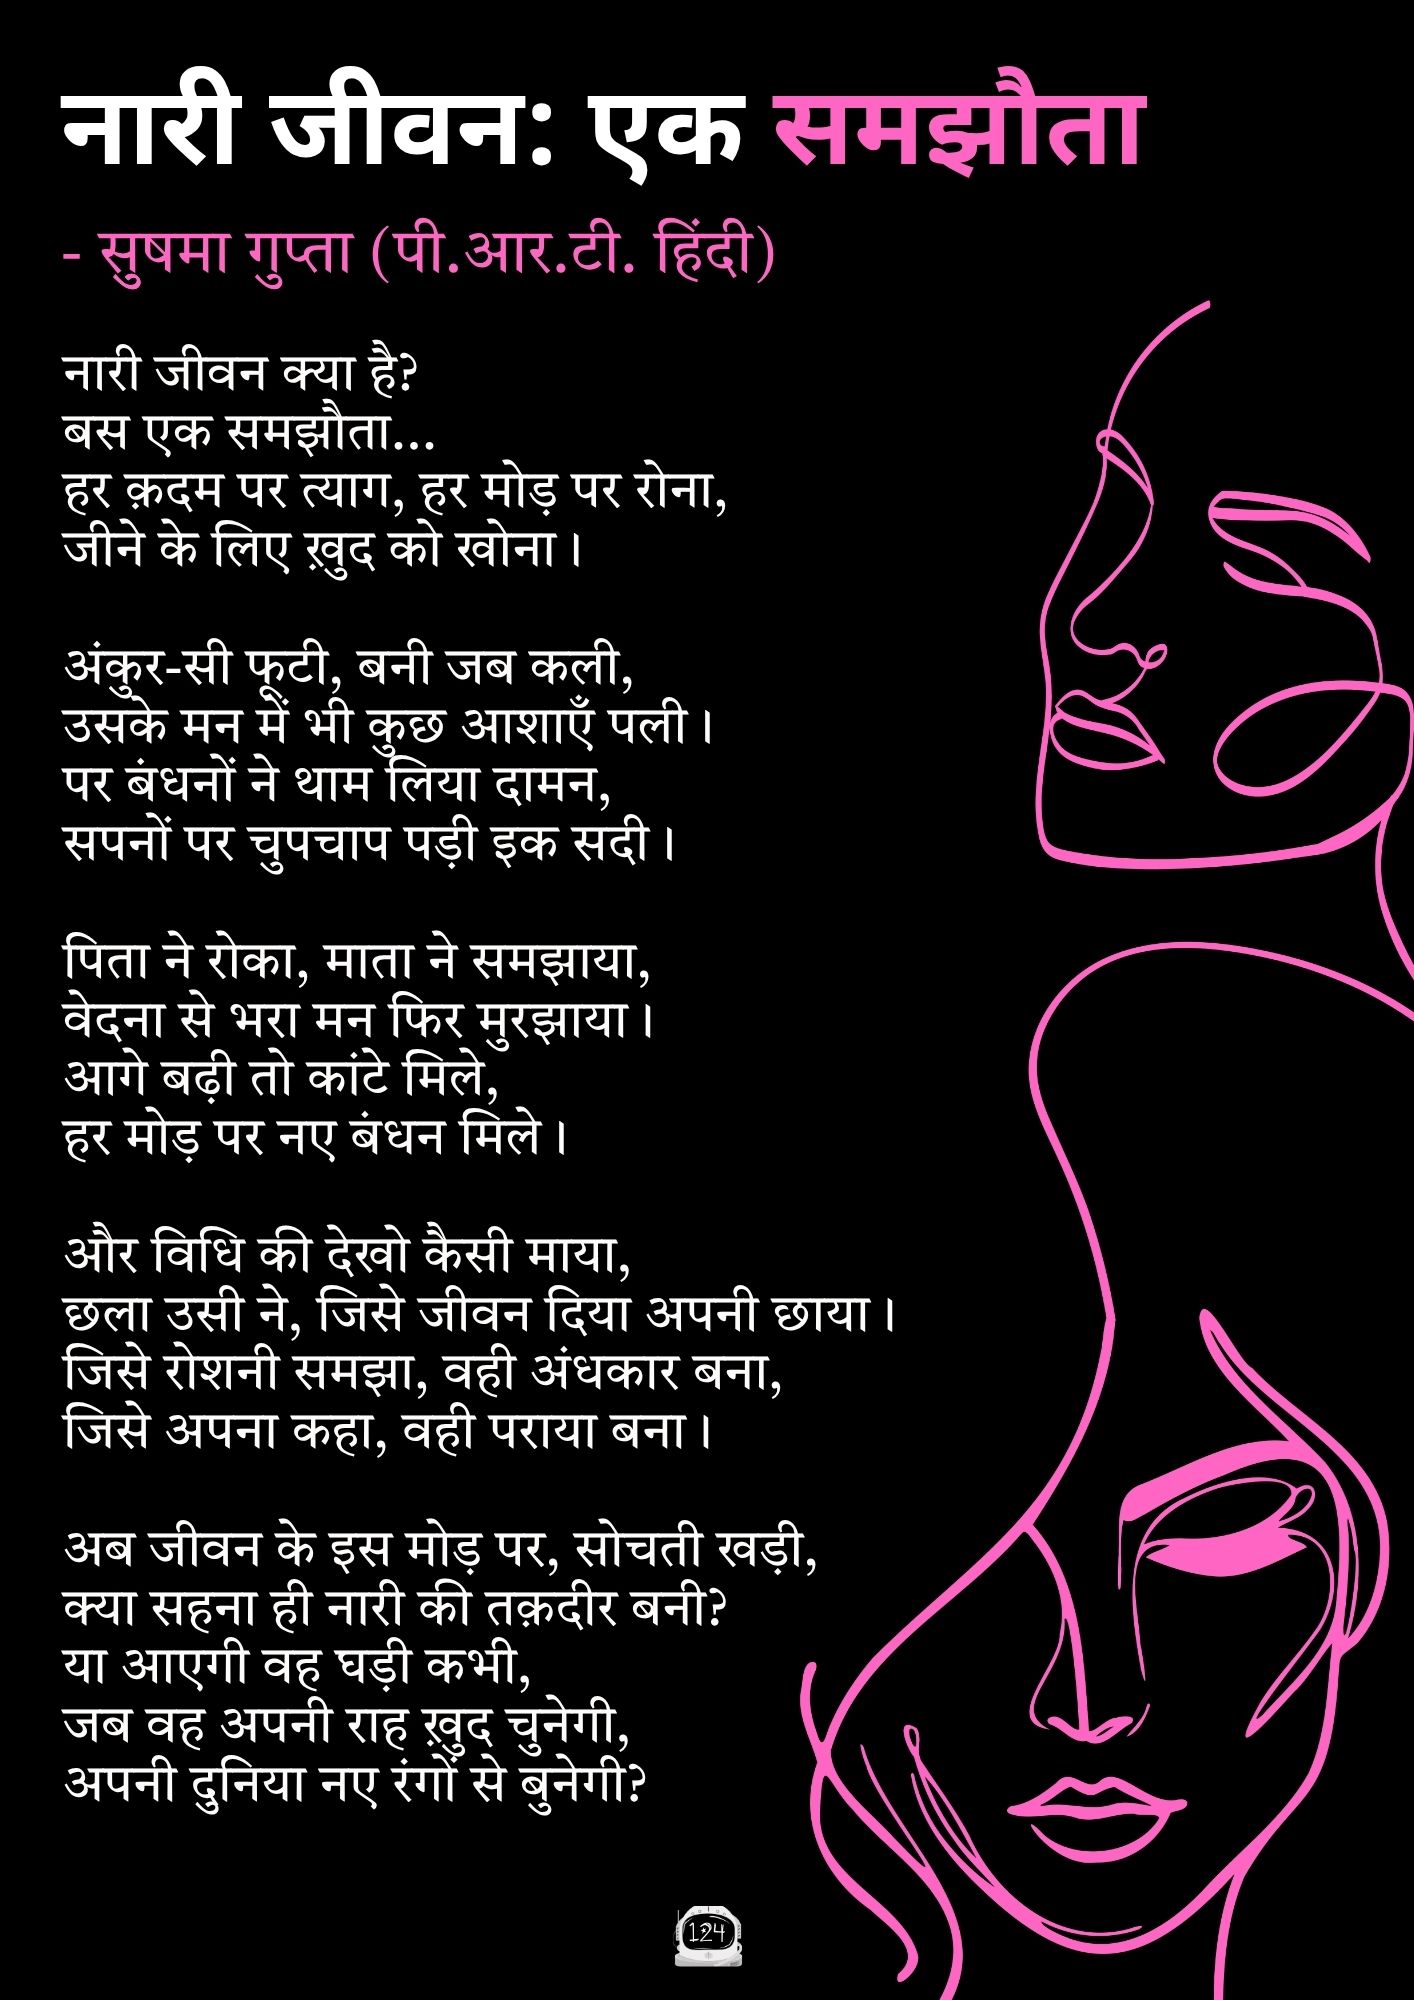 नारी जीवन: एक समझौता
- सुषमा गुप्ता (पी.आर.टी. हिंदी)
नारी जीवन क्या है?
बस एक समझौता...
हर क़दम पर त्याग, हर मोड़ पर रोना,
जीने के लिए ख़ुद को खोना।
अंकुर-सी फूटी, बनी जब कली,
उसके मन में भी कुछ आशाएँ पली।
पर बंधनों ने थाम लिया दामन,
सपनों पर चुपचाप पड़ी इक सदी।
पिता ने रोका, माता ने समझाया,
वेदना से भरा मन फिर मुरझाया।
आगे बढ़ी तो कांटे मिले,
हर मोड़ पर नए बंधन मिले।
और विधि की देखो कैसी माया,
छला उसी ने, जिसे जीवन दिया अपनी छाया।
जिसे रोशनी समझा, वही अंधकार बना,
जिसे अपना कहा, वही पराया बना।
अब जीवन के इस मोड़ पर, सोचती खड़ी,
क्या सहना ही नारी की तक़दीर बनी?
या आएगी वह घड़ी कभी,
जब वह अपनी राह ख़ुद चुनेगी,
अपनी दुनिया नए रंगों से बुनेगी?
124